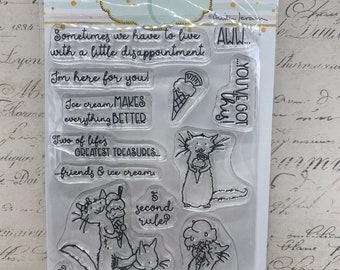 Sometimes we have to live
with a little disappointment
AWW...
I'm here for you!
YOU'VE GOT
this!
Ice cream MAKES
everything BETTER
Two of life's
GREATEST TREASURES...
friends & ice cream!
5
second
rule?